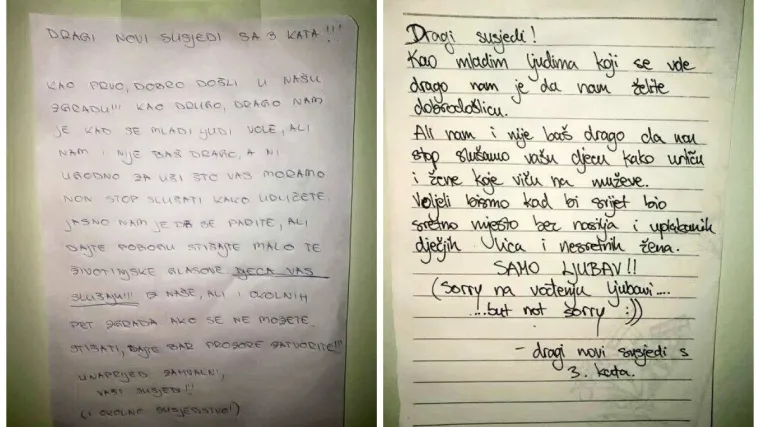 DRAGI NOVI SUSJEDI SA 3 KATA!!!
KAO PRVO, DOBRO DOŠLI U NAŠU
ZGRADU!!! KAO DRUGO, DRAGO NAM
JE KAD SE MLADI LJUDI VOLE, ALI
NAM I NIJE BAŠ DRAGO, A NI
UGODNO ZA UŠI ŠTO VAS MORAMO
NON STOP SLUŠATI KAKO UDLIČETE.
JASNO NAM JE DA SE PADITE, ALI
DAJTE POBOGU STIŠAJTE MALO TE
ŽIVOTINJSKE GLASOVE. DJECA VAS
SLUŠAJU!!! IZ NAŠE, ALI I OKOLNIH
PET ZGRADA AKO SE NE MOŽETE
STIŠATI, DAJTE BAR PROZORE ZATVORITE!!!
UNAPRIJED ZAHVALNI,
VAŠI SUSJEDI!!!
(I OKOLNO SUSJEDSTVO!)
Dragi susjedi!
Kao mladim ljudima koji se vole
drago nam je da nam želite
dobrodošlicu.
Ali nam i nije baš drago da non
stop slušamo vašu djecu kako urliču
i žene koje viču na muževe.
Voljeli bismo kad bi svijet bio
sretno mjesto bez nasilja i uplakanih
dječjih lica i nesretnih žena.
SAMO LJUBAV!!
(Sorry na vođenju ljubavi....
....but not sorry :))
- dragi novi susjedi s
3. kata.